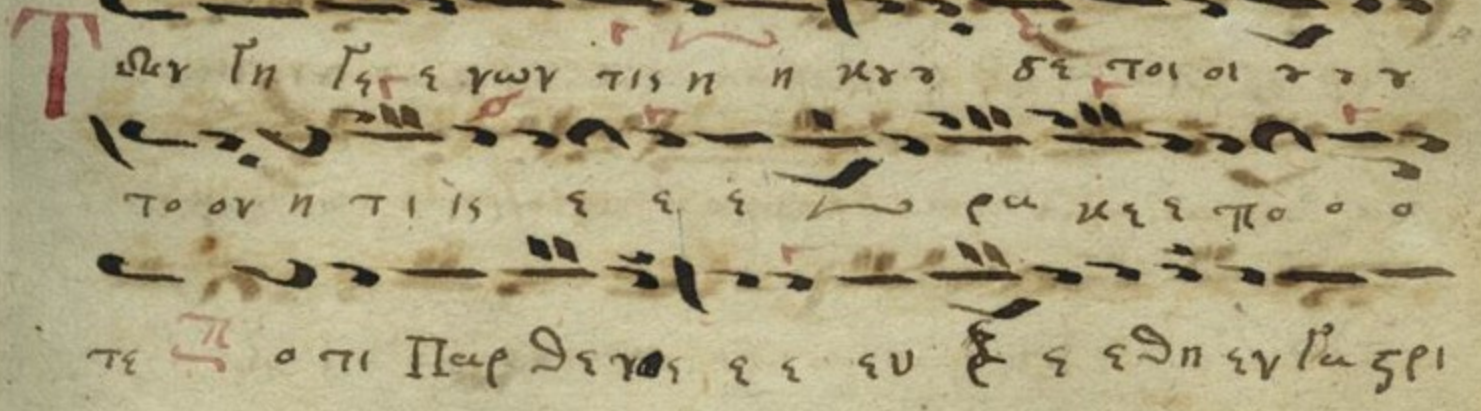 Των γη γε ε νων τις η η κου ου δε τοι οι ου ου ου
το ον η τι ις ε ε ε ρα κε ε πο ο ο
τε ο τι Παρ θε νο ε ε ευ ε εθη εν γα στρι